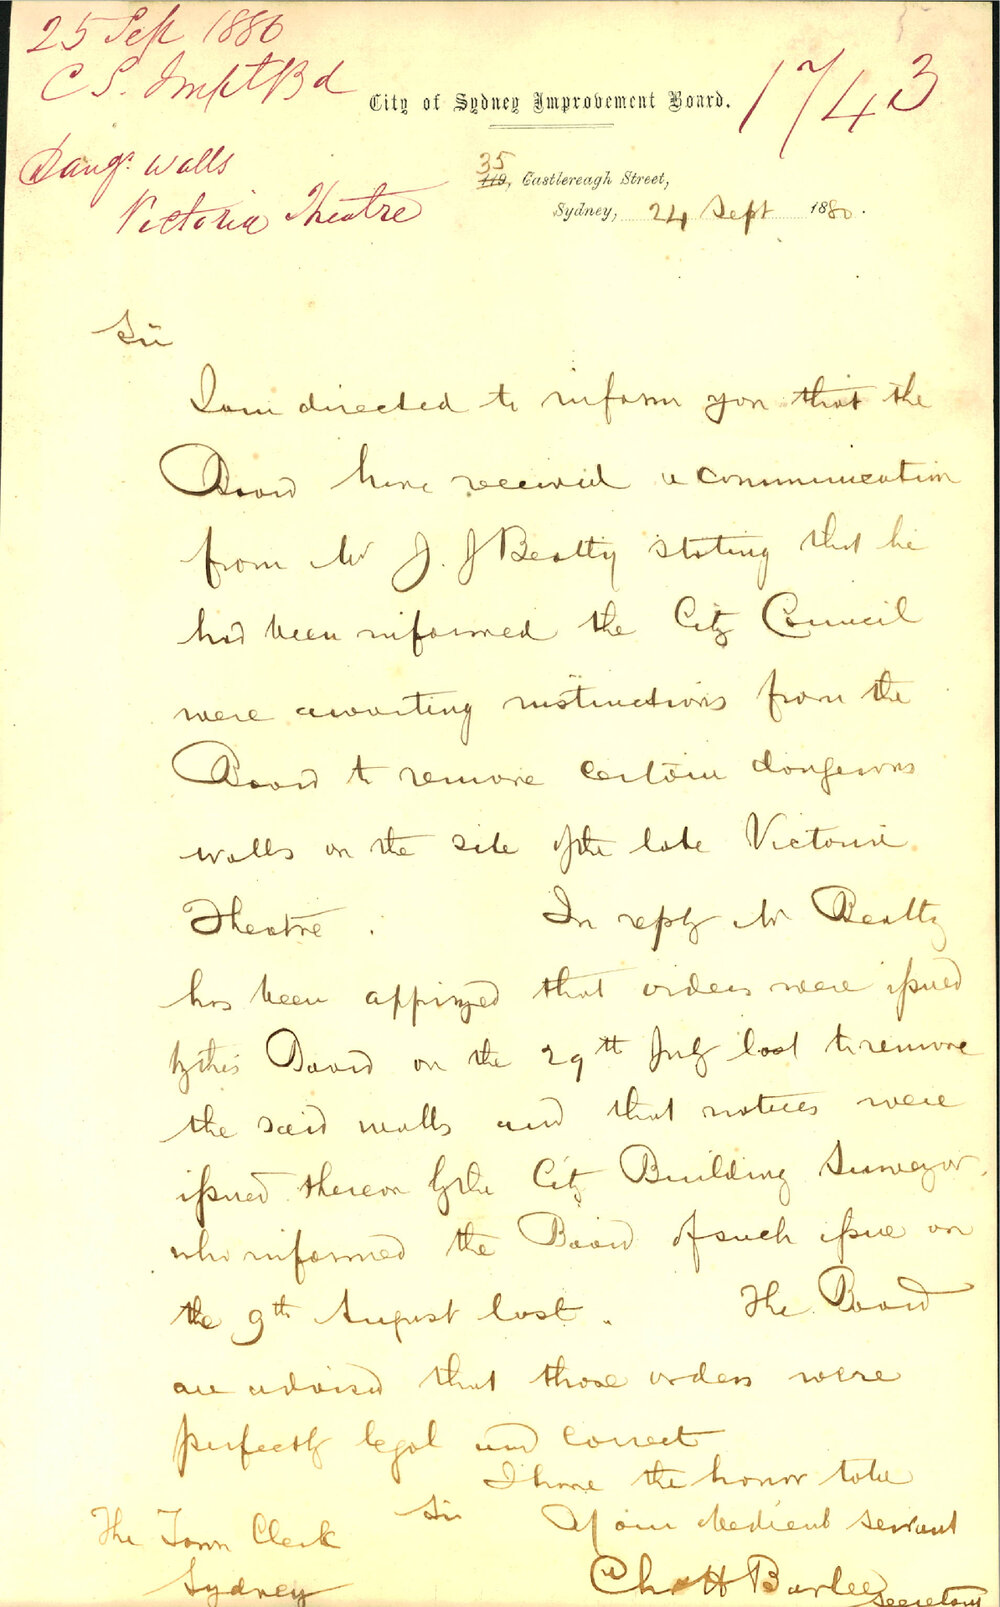 25 Sept 1880
C S. Impt Bd
1743
City of Sydney Improvement Board.
Dangs. walls
Victoria Theatre
35
119, Castlereagh Street,
Sydney, 24 Sept 1880.
Sir
I am directed to inform you that the
Board have received a communication
from Mr J. J Beatty stating that he
had been informed the City Council
were awaiting instructions from the
Board to remove certain dangerous
walls on the site of the late Victoria
Theatre. In reply Mr Beatty
has been apprized that orders were issued
by this Board on the 29th July last to remove
the said walls and that notices were
issued thereon by the City Building Surveyor.
who informed the Board of such issue on
the 9th August last. The Board
are advised that those orders were
perfectly legal and correct
I have the honor to be
Sir
Your obedient servant
The Town Clerk
Sydney
Chas H Barlee
Secretary